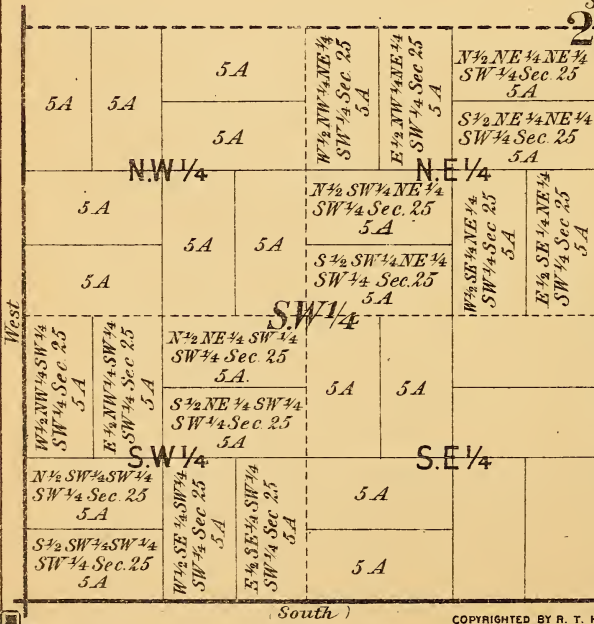 2
5 A
5 A
5 A
5 A
W½NW¼NE¼
SW¼Sec 25
5 A
E½NW¼NE¼
SW¼Sec 25
5 A
N½NE¼NE¼
SW¼Sec. 25
5 A
S½NE¼NE¼
SW¼Sec. 25
5 A
N.W¼
N.E¼
5 A
5 A
5 A
5 A
N½SW¼NE¼
SW¼Sec. 25
5 A
S½SW¼NE¼
SW¼Sec. 25
5 A
W½SE¼NE¼
SW¼Sec 25
5 A
E½SE¼NE¼
SW¼Sec 25
5 A
West
S.W¼
W½NW¼SW¼
SW¼Sec. 25
5 A
E½NW¼SW¼
SW¼Sec. 25
5 A
N½NE¼SW¼
SW¼Sec 25
5 A.
S½NE¼SW¼
SW¼Sec. 25
5 A
5 A
5 A
S.W¼
S.E¼
N½SW¼SW¼
SW¼Sec 25
5 A
S½SW¼SW¼
SW¼Sec. 25
5 A
W½SE¼SW¼
SW¼Sec 25
5 A
E½SE¼SW¼
SW¼Sec 25
5 A
5 A
5 A
(South)
COPYRIGHTED BY R. T.